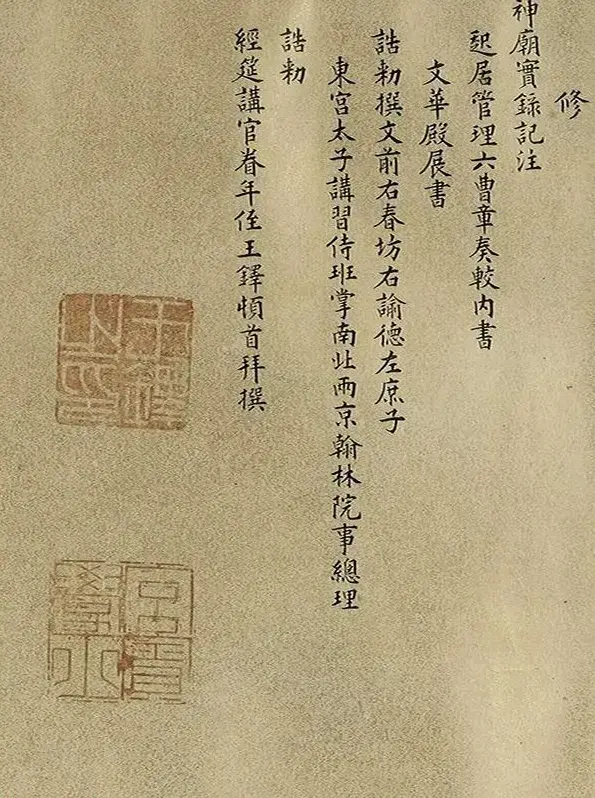 修
神廟實錄記注
起居管理六曹章奏較内書
文華殿展書
誥勅撰文前右春坊右諭德左庶子
東宮太子講習侍班掌南北兩京翰林院事總理
誥勅
經筵講官眷年侄王鐸頓首拜撰
王鐸之印